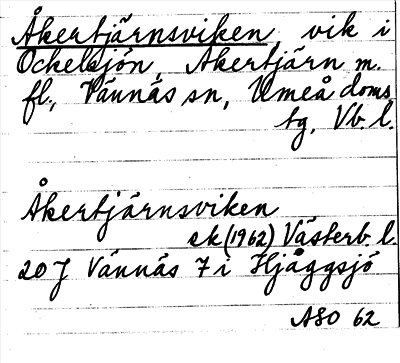 Åkertjärnsviken, vik i
Ockelsjön, Åkertjärn m.
fl., Vännäs sn, Umeå doms.
tg, Vb. l.
Åkertjärnsviken
ek (1962) Västerb. l.
20 J Vännäs 7 i Hjåggsjö
ASO 62